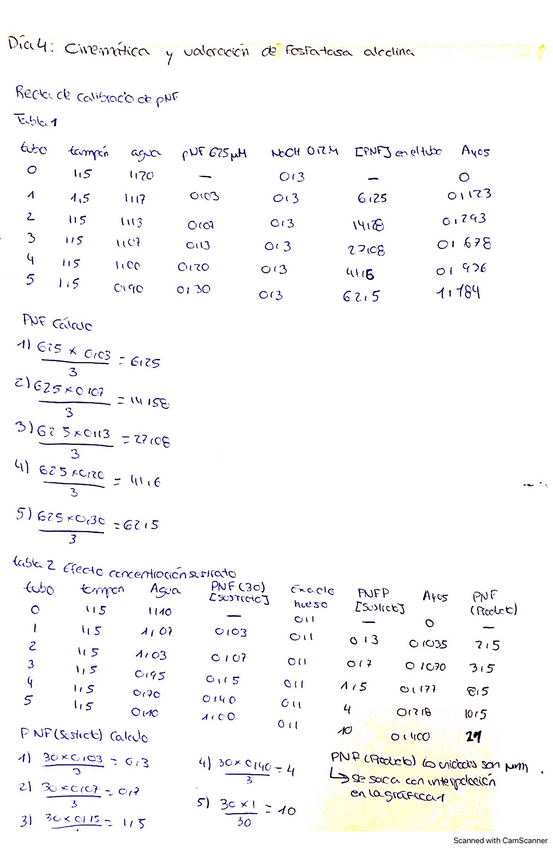 Día 4: Cinemática y valoración de fosfatasa alcalina
Recta de calibració de pNF
Tabla 1
tubo tampón agua pNF 625 µM NaOH 0'2M [PNF] en el tubo A405
0 1'5 1'20 — 0'3 — 0
1 1'5 1'17 0'03 0'3 6'25 0'123
2 1'5 1'13 0'07 0'3 14'28 0'293
3 1'5 1'07 0'13 0'3 27'08 0'678
4 1'5 1'00 0'20 0'3 41'6 0'926
5 1'5 0'90 0'30 0'3 62'5 1'184
PNF Cálculo
1) 625 x 0'03 / 3 = 6'25
2) 625 x 0'07 / 3 = 14'58
3) 625 x 0'13 / 3 = 27'08
4) 625 x 0'20 / 3 = 41'6
5) 625 x 0'30 / 3 = 62'5
tabla 2 Efecto concentración sustrato
tubo tampon Agua PNF (30) [sustrato] Extracto hueso PNFP [Sustrato] A405 PNF (Producto)
0 1'5 1'10 — 0'1 — 0 —
1 1'5 1'07 0'03 0'1 0'3 0'035 2'5
2 1'5 1'03 0'07 0'1 0'7 0'070 3'5
3 1'5 0'95 0'15 0'1 1'5 0'177 8'5
4 1'5 0'70 0'40 0'1 4 0'218 10'5
5 1'5 0'10 1'00 0'1 10 0'400 21
PNF (Sustrato) Calculo
1) 30 x 0'03 / 3 = 0'3
2) 30 x 0'07 / 3 = 0'7
3) 30 x 0'15 / 3 = 1'5
4) 30 x 0'40 / 3 = 4
5) 30 x 1 / 30 = 10
PNP (Producto) las unidades son
↳ se saca con interpolación
en la gráfica 1
Scanned with CamScanner